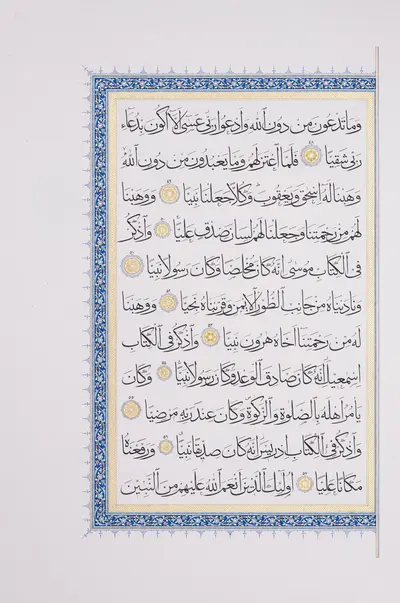 وَمَا تَدْعُونَ مِنْ دُونِ اللّٰهِ وَاَدْعُوا رَبّى عَسٰٓى اَلَّٓا اَكُونَ بِدُعَٓاءِ
رَبّى شَقِيًّا ﴿٤٨﴾ فَلَمَّا اعْتَزَلَهُمْ وَمَا يَعْبُدُونَ مِنْ دُونِ اللّٰهِ
وَهَبْنَا لَهُٓ اِسْحٰقَ وَيَعْقُوبَ وَكُلًّا جَعَلْنَا نَبِيًّا ﴿٤٩﴾ وَوَهَبْنَا
لَهُمْ مِنْ رَحْمَتِنَا وَجَعَلْنَا لَهُمْ لِسَانَ صِدْقٍ عَلِيًّا ﴿٥٠﴾ وَاذْكُرْ
فِى الْكِتَابِ مُوسٰٓى اِنَّهُ كَانَ مُخْلَصًا وَكَانَ رَسُولًا نَبِيًّا ﴿٥١﴾
وَنَادَيْنَاهُ مِنْ جَانِبِ الطُّورِ الْاَيْمَنِ وَقَرَّبْنَاهُ نَجِيًّا ﴿٥٢﴾ وَوَهَبْنَا
لَهُ مِنْ رَحْمَتِنَٓا اَخَاهُ هٰرُونَ نَبِيًّا ﴿٥٣﴾ وَاذْكُرْ فِى الْكِتَابِ
اِسْمٰعيلَ اِنَّهُ كَانَ صَادِقَ الْوَعْدِ وَكَانَ رَسُولًا نَبِيًّا ﴿٥٤﴾ وَكَانَ
يَاْمُرُ اَهْلَهُ بِالصَّلٰوةِ وَالزَّكٰوةِ وَكَانَ عِنْدَ رَبِّه مَرْضِيًّا ﴿٥٥﴾
وَاذْكُرْ فِى الْكِتَابِ اِدْريسَ اِنَّهُ كَانَ صِدّيقًا نَبِيًّا ﴿٥٦﴾ وَرَفَعْنَاهُ
مَكَانًا عَلِيًّا ﴿٥٧﴾ اُولٰٓئِكَ الَّذينَ اَنْعَمَ اللّٰهُ عَلَيْهِمْ مِنَ النَّبِيّنَ